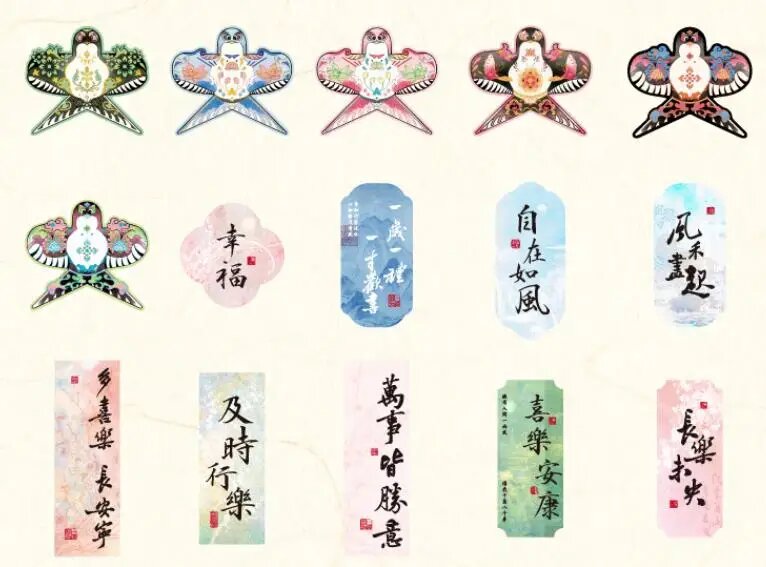 幸福
一歲一禮
一寸歡喜
自在如風
風禾盡起
多喜樂 長安寧
及時行樂
萬事皆勝意
喜樂安康
長樂未央